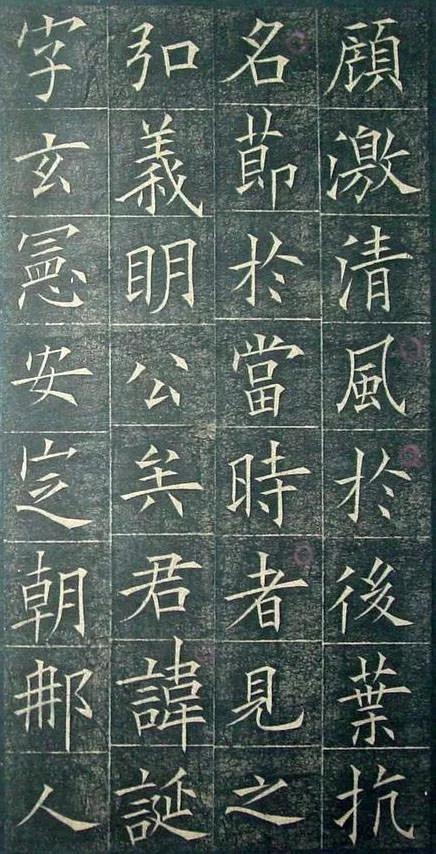 顧激清風於後葉抗
名節於當時者見之
弘義明公矣君諱誕
字玄憲安定朝那人